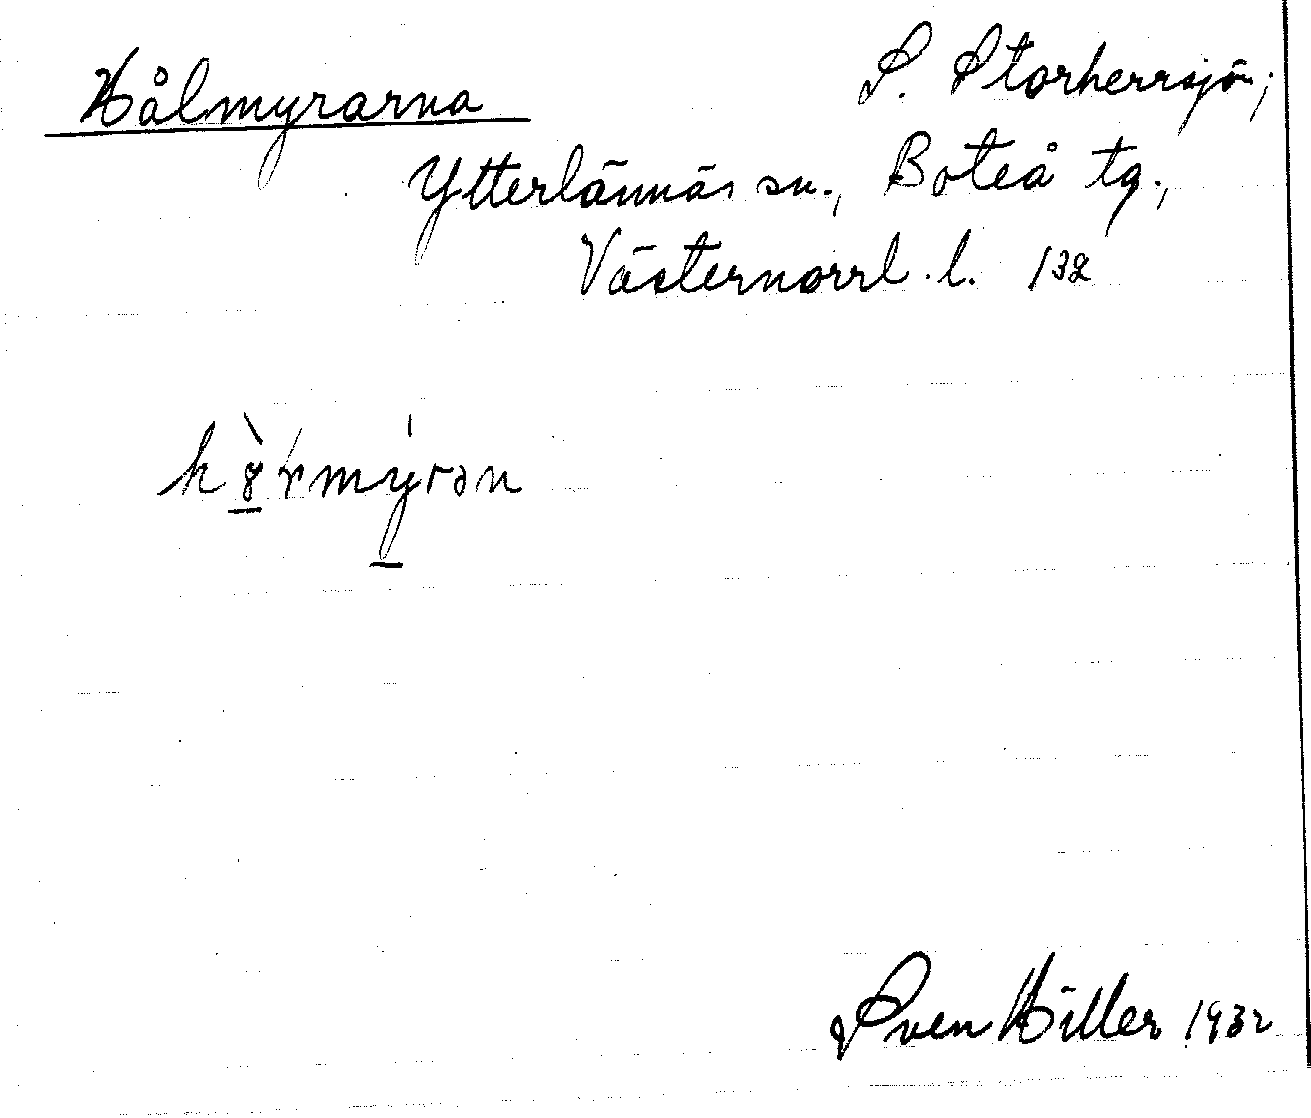 Hålmyrarna
S. Storherrsjön;
Ytterlännäs sn., Boteå tg.,
Västernorrl. l. 132
Sven Hiller 1932